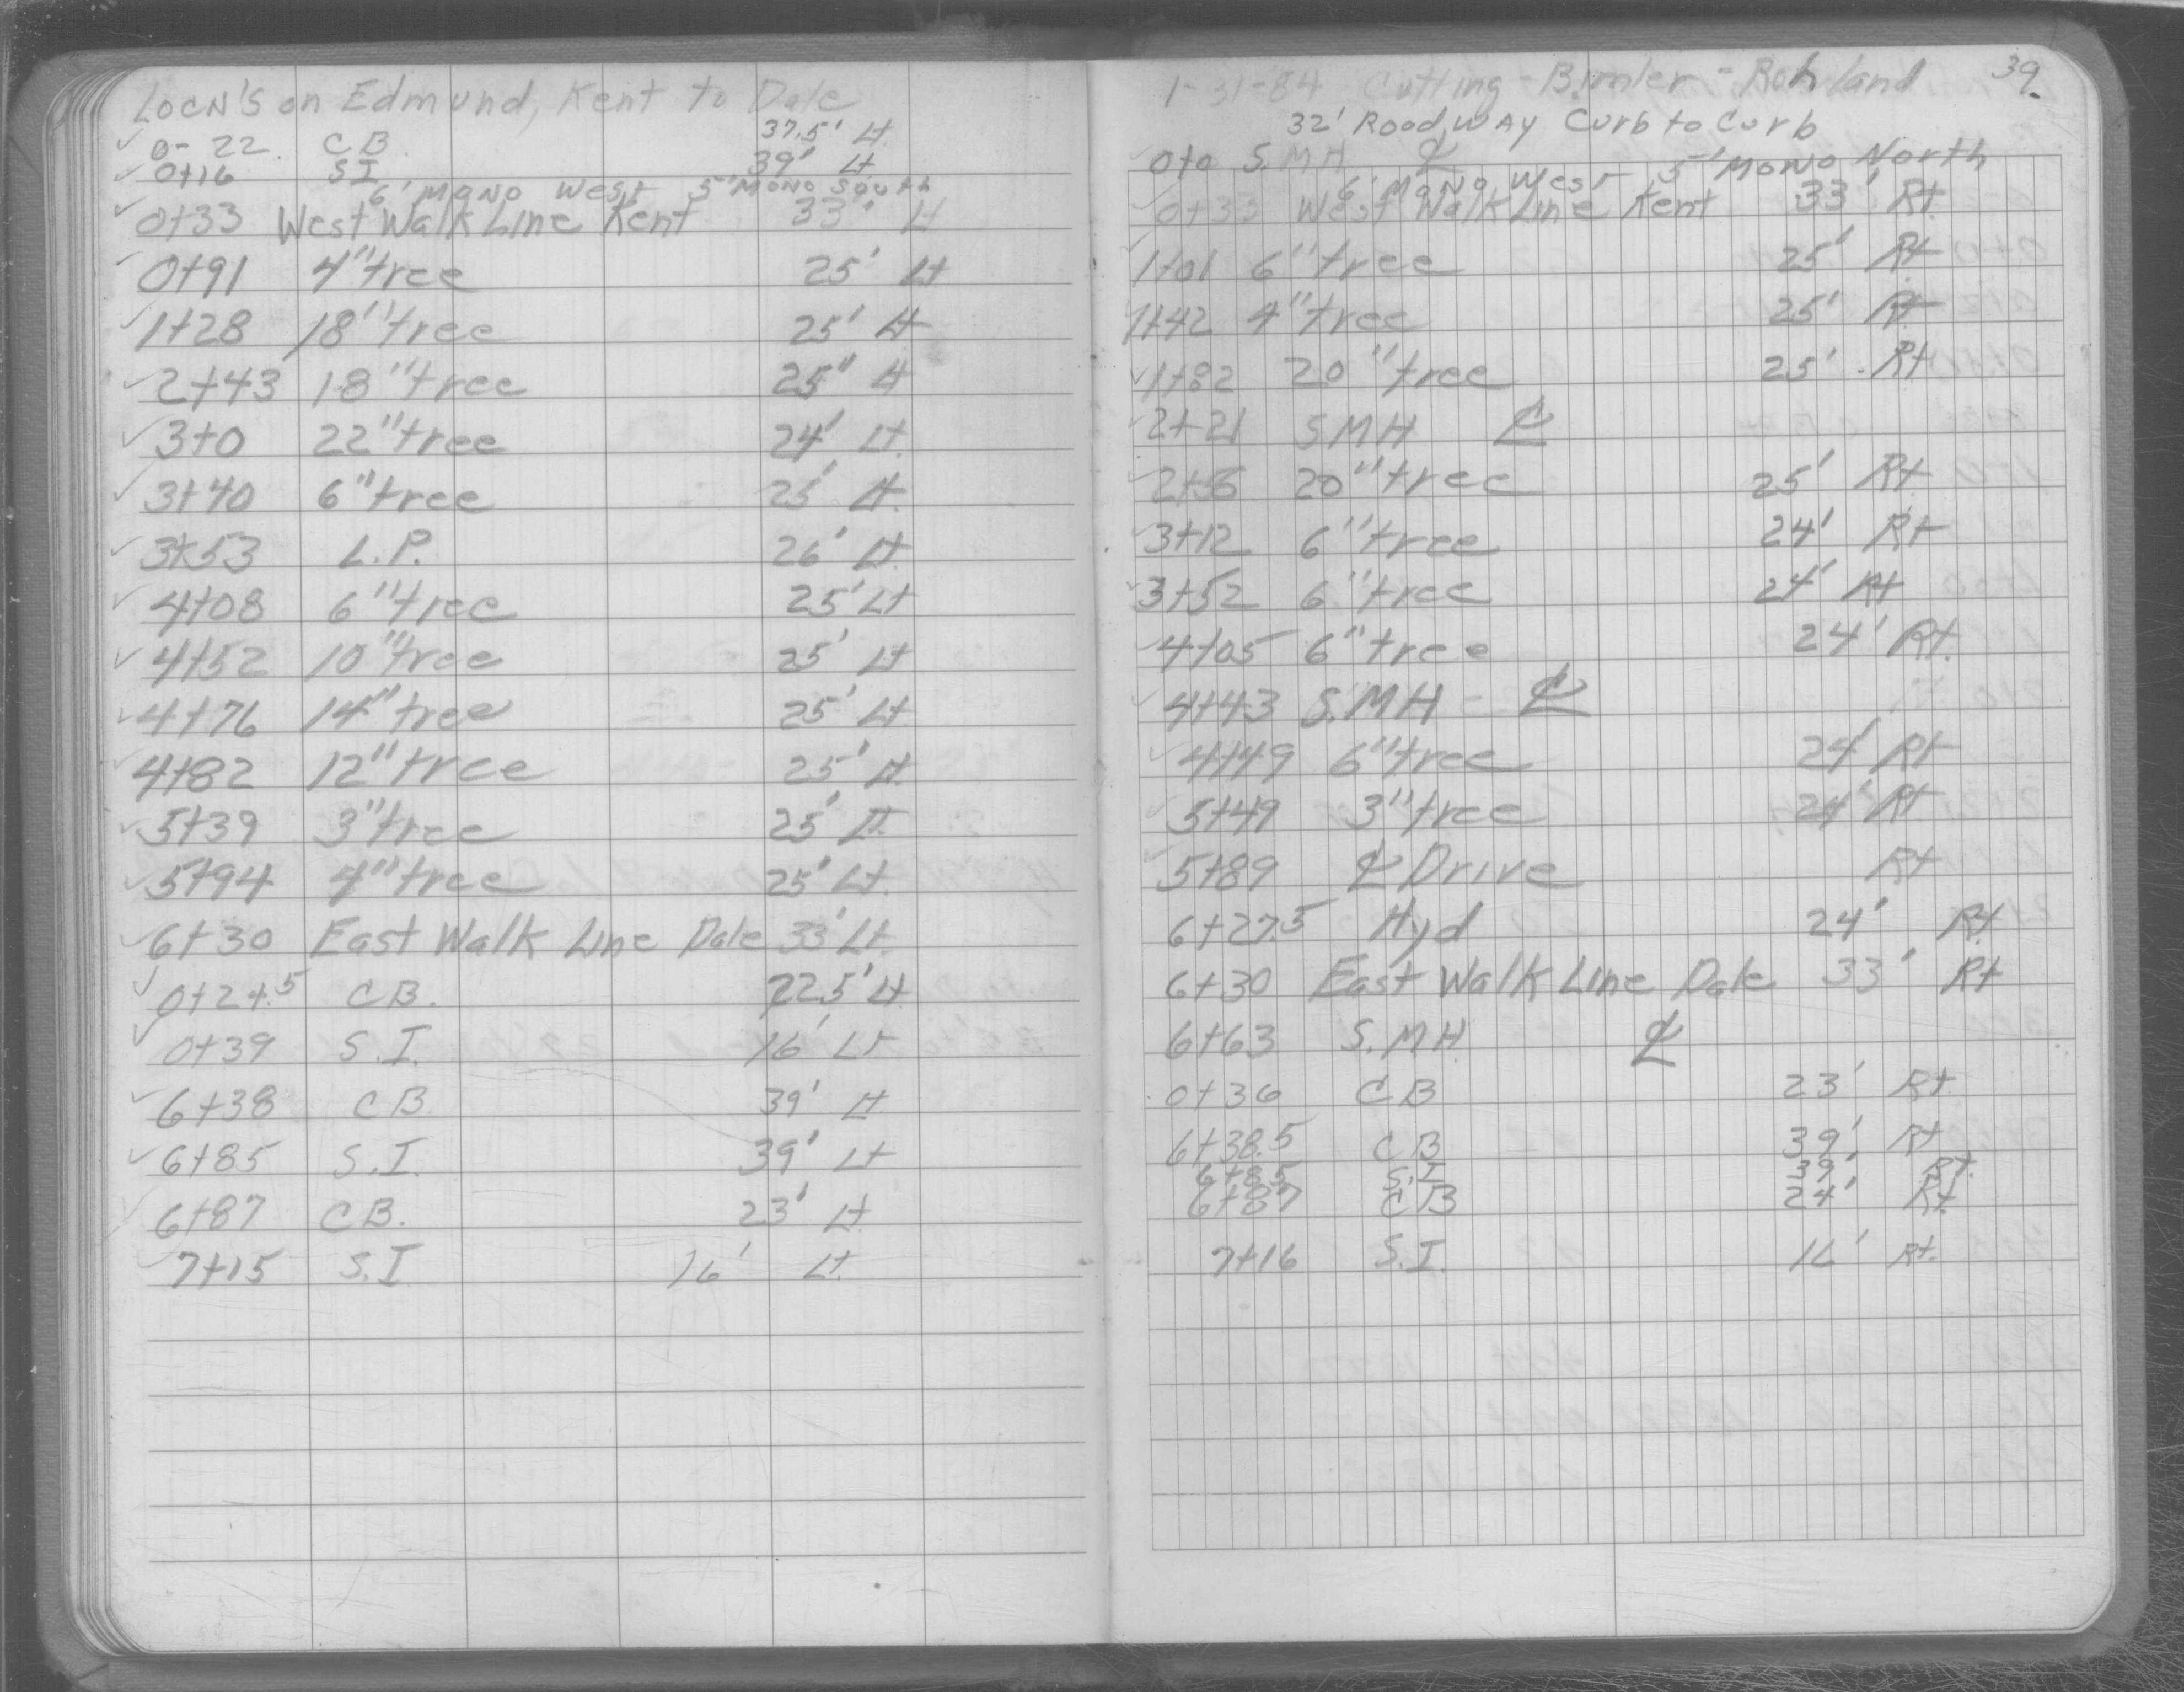 Locn's on Edmund, Kent to Dale
✓ 0-22 CB 37.5' Lt.
✓ 0+16 SI 39' Lt
6' Mono West 5' Mono South
✓ 0+33 West Walk Line Kent 33' Lt
✓ 0+91 4" tree 25' Lt
✓ 1+28 18" tree 25' Lt
✓ 2+43 18" tree 25" Lt
✓ 3+0 22" tree 24' Lt.
✓ 3+40 6" tree 25' Lt.
✓ 3+53 L.P. 26' Lt.
✓ 4+08 6" tree 25' Lt
✓ 4+52 10" tree 25' Lt
✓ 4+76 14" tree 25' Lt
✓ 4+82 12" tree 25' Lt.
✓ 5+39 3" tree 25' Lt.
✓ 5+94 4" tree 25' Lt.
✓ 6+30 East Walk Line Dale 33' Lt.
✓ CB. 22.5' Lt
✓ 0+39 S.I. 16' Lt
✓ 6+38 CB 39' Lt
✓ 6+85 S.I. 39' Lt
✓ 6+87 CB. 23' Lt
✓ 7+15 S.I 16' Lt.
1-31-84 Cutting - Bimler - Rohland 39
32' Roadway Curb to Curb
✓ 0+0 S.MH ℄
6' Mono West 5' Mono North
✓ 0+33 West Walk Line Kent 33' Rt
✓ 1+01 6" tree 25' Rt
✓ 1+42 4" tree 25' Rt
✓ 1+82 20" tree 25' Rt
✓ 2+21 SMH ℄
✓ 2+56 20" tree 25' Rt
✓ 3+12 6" tree 24' Rt
✓ 3+52 6" tree 24' Rt
✓ 4+05 6" tree 24' Rt.
✓ 4+43 S.MH - ℄
✓ 4+49 6" tree 24' Rt
✓ 5+49 3" tree 24' Rt
✓ 5+89 ℄ Drive Rt
6+27.5 Hyd 24' Rt
6+30 East Walk Line Dale 33' Rt
6+63 S.MH. ℄
0+36 CB 23' Rt.
6+38.5 CB 39' Rt
6+85 S.I 39' Rt.
6+87 CB 24' Rt
7+16 S.I. 16' Rt.